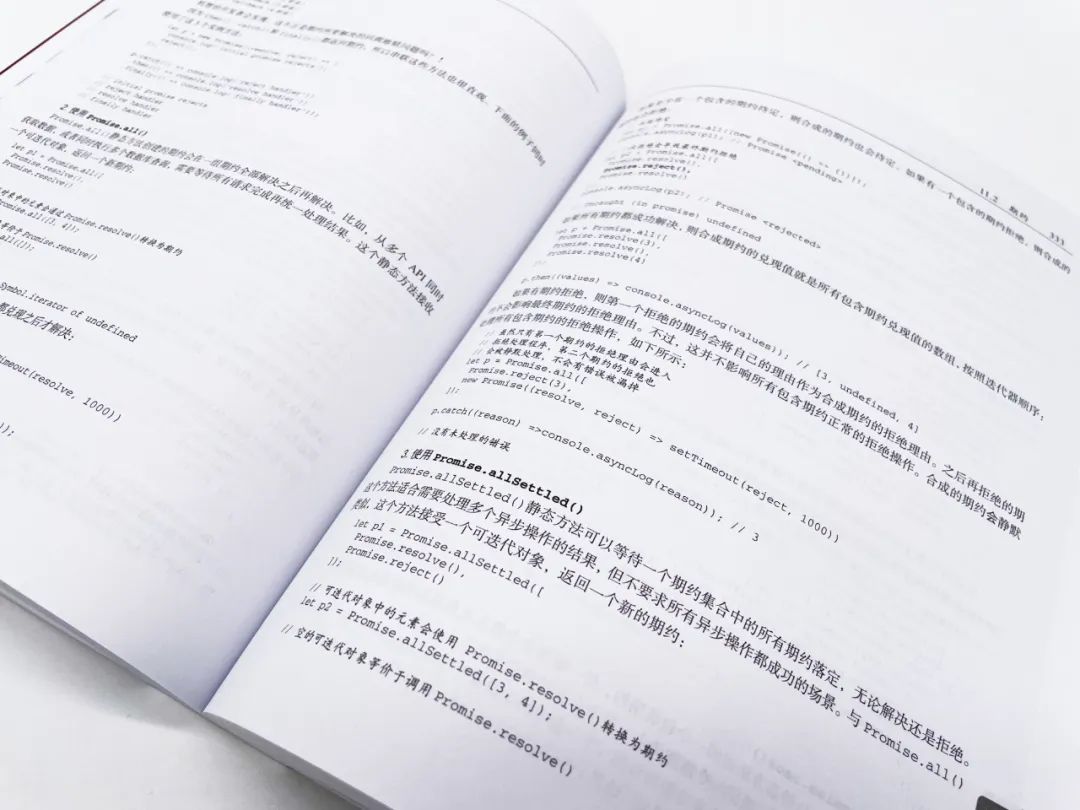 2.使用Promise.all()
Promise.all()静态方法创建的期约会在一组期约全部解决之后再解决。比如，从多个 API 同时
获取数据，或者同时执行多个数据库查询，需要等待所有请求完成再统一处理结果。这个静态方法接收
一个可迭代对象，返回一个新期约：
let p1 = Promise.all([
Promise.resolve(),
Promise.resolve()
对象中的元素会通过 Promise.resolve()转换为期约
Promise.all([3, 4]);
等价于 Promise.resolve()
all([]);
Symbol.iterator of undefined
都兑现之后才解决：
imeout(resolve, 1000))
));
11.2 期约
311
一个包含的期约待定，则合成的期约也会待定。如果有一个包含的期约拒绝，则合成的
Promise.all([new Promise(() => {})]);
console.asyncLog(p1); // Promise <pending>
Promise.resolve(),
Promise.reject(),
Promise.resolve()
console.asyncLog(p2); // Promise <rejected>
// Uncaught (in promise) undefined
如果所有期约都成功解决，则合成期约的兑现值就是所有包含期约兑现值的数组，按照迭代器顺序：
let p = Promise.all([
Promise.resolve(3),
Promise.resolve(),
Promise.resolve(4)
p.then((values) => console.asyncLog(values)); // [3, undefined, 4]
如果有期约拒绝，则第一个拒绝的期约会将自己的理由作为合成期约的拒绝理由。之后再拒绝的期
约不会影响最终期约的拒绝理由。不过，这并不影响所有包含期约正常的拒绝操作。合成的期约会静默
处理所有包含期约的拒绝操作，如下所示：
// 虽然只有第一个期约的拒绝理由会进入
// 拒绝处理程序，第二个期约的拒绝也
// 会被静默处理，不会有错误被漏掉
let p = Promise.all([
Promise.reject(3),
new Promise((resolve, reject) => setTimeout(reject, 1000))
]);
p.catch((reason) =>console.asyncLog(reason)); // 3
// 没有未处理的错误
3.使用Promise.allSettled()
Promise.allSettled()静态方法可以等待一个期约集合中的所有期约落定，无论解决还是拒绝。
这个方法适合需要处理多个异步操作的结果，但不要求所有异步操作都成功的场景。与 Promise.all()
类似，这个方法接受一个可迭代对象，返回一个新的期约：
let p1 = Promise.allSettled([
Promise.resolve(),
Promise.reject()
]);
// 可迭代对象中的元素会使用 Promise.resolve()转换为期约
let p2 = Promise.allSettled([3, 4]);
// 空的可迭代对象等价于调用 Promise.resolve()